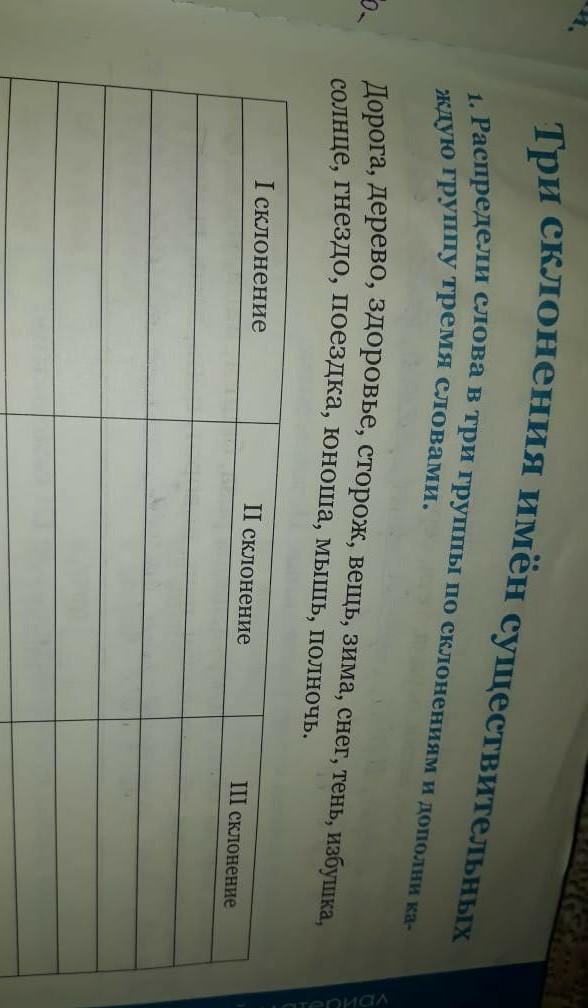 Три склонения имён существительных
1. Распредели слова в три группы по склонениям и дополни ка-
ждую группу тремя словами.
Дорога, дерево, здоровье, сторож, вещь, зима, снег, тень, избушка,
солнце, гнездо, поездка, юноша, мышь, полночь.
I склонение
II склонение
III склонение